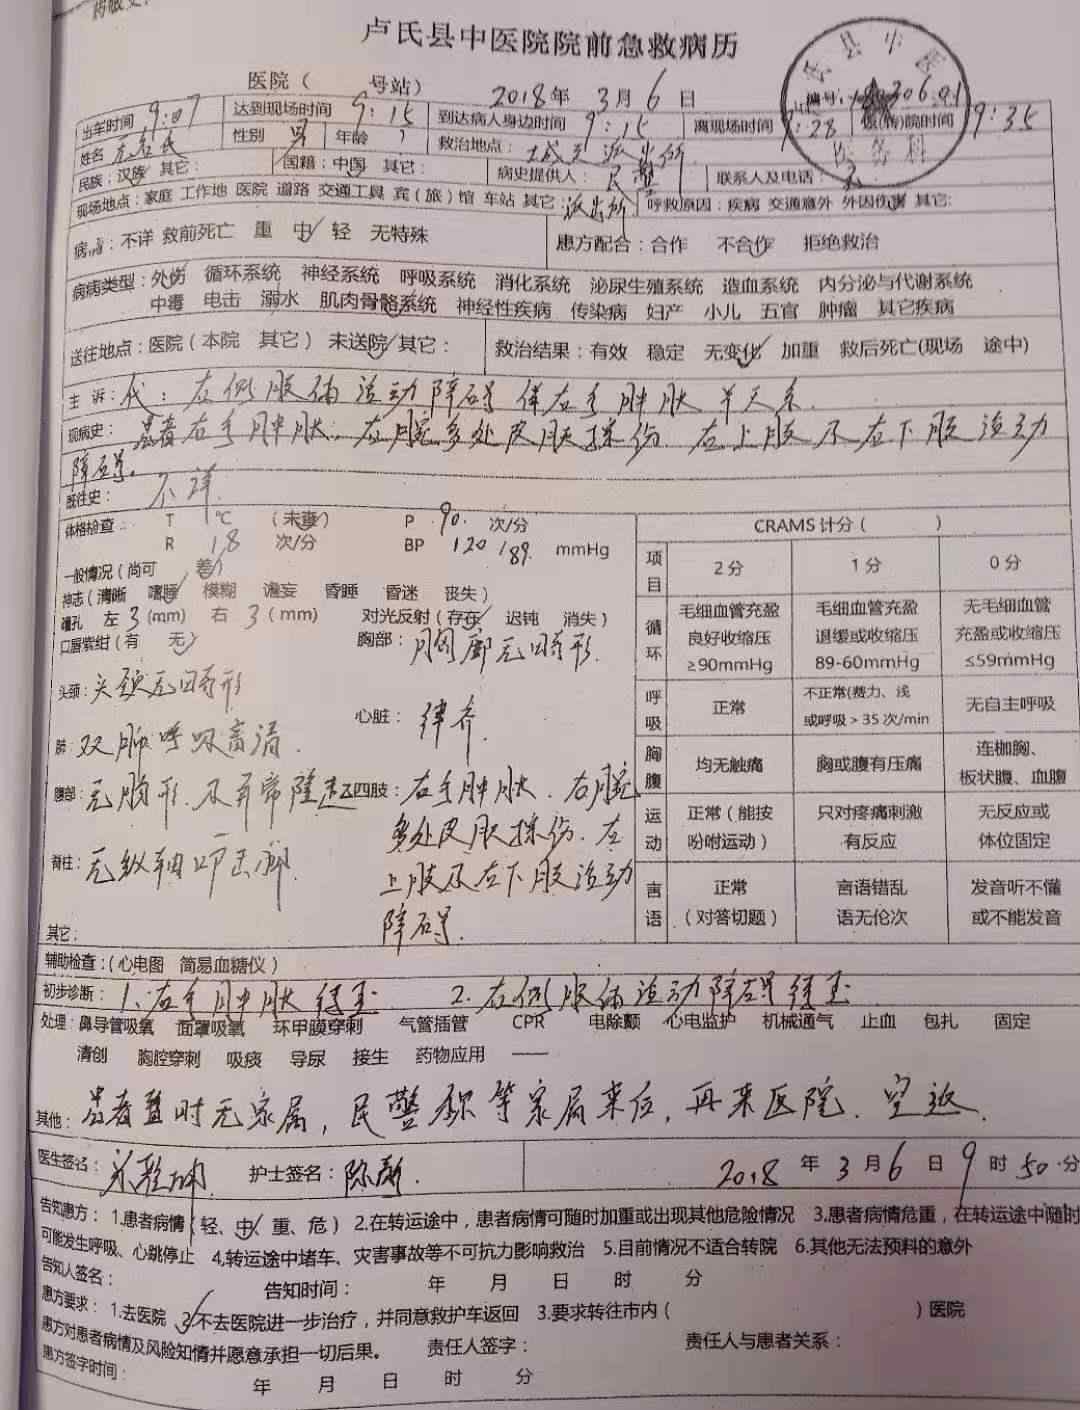 卢氏县中医院院前急救病历
医院（ 号站） 2018年 3月 6日
出车时间 9:07 达到现场时间 9:15 到达病人身边时间 9:15 离现场时间 9:28 时间 9:35
姓名 性别 男 年龄 救治地点： 派出所
民族：汉族 其它： 国籍：中国 其它： 病史提供人：民警 联系人及电话：无
现场地点：家庭 工作地 医院 道路 交通工具 宾（旅）馆 车站 其它：派出所 呼救原因：疾病 交通意外 外因伤害 其它：
病情：不详 救前死亡 重 中 轻 无特殊 患方配合：合作 不合作 拒绝救治
疾病类型：外伤 循环系统 神经系统 呼吸系统 消化系统 泌尿生殖系统 造血系统 内分泌与代谢系统
中毒 电击 溺水 肌肉骨骼系统 神经性疾病 传染病 妇产 小儿 五官 肿瘤 其它疾病
送往地点：医院（本院 其它）未送院 其它： 救治结果：有效 稳定 无变化 加重 救后死亡(现场 途中)
主 诉：代：左侧肢体活动障碍伴右手肿胀半天余.
现病史：患者右手肿胀，右腕多处皮肤擦伤 左上肢及左下肢活动
障碍。
既往史： 不详
体格检查： T ℃ （未查） P 90 次/分
R 18 次/分 BP 120/89 mmHg
一般情况（尚可 差）
神志（清晰 嗜睡 模糊 谵妄 昏睡 昏迷 丧失）
瞳孔 左 3 (mm) 右 3 (mm) 对光反射（存在 迟钝 消失）
口唇紫绀（有 无） 胸部：胸廓无畸形.
头颈：头颈无畸形
心脏：律齐.
肺：双肺呼吸音清.
腹部： 及异常隆起 四肢：右手肿胀. 右腕
多处皮肤擦伤. 左
脊柱：无纵轴叩击痛. 上肢及左下肢活动
障碍.
其它：
CRAMS 计分（ ）
项目 2分 1分 0分
循环 毛细血管充盈良好收缩压≥90mmHg 毛细血管充盈退缓或收缩压89-60mmHg 无毛细血管充盈或收缩压≤59mmHg
呼吸 正常 不正常(费力、浅或呼吸＞35次/min 无自主呼吸
胸腹 均无触痛 胸或腹有压痛 连枷胸、板状腹、血腹
运动 正常（能按吩咐运动） 只对疼痛刺激有反应 无反应或体位固定
言语 正常（对答切题） 言语错乱语无伦次 发音听不懂或不能发音
辅助检查：（心电图 简易血糖仪）
初步诊断： 1、右手肿胀待查 2. 左侧肢体活动障碍待查
处理：鼻导管吸氧 面罩吸氧 环甲膜穿刺 气管插管 CPR 电除颤 心电监护 机械通气 止血 包扎 固定
清创 胸腔穿刺 吸痰 导尿 接生 药物应用 ——
其他：患者暂时无家属，民警称等家属来后，再来医院. 空返.
医生签名： 护士签名： 2018 年 3 月 6 日 9 时 50 分
告知患方：1.患者病情（轻、中、重、危）2.在转运途中，患者病情可随时加重或出现其他危险情况 3.患者病情危重，在转运途中随时
可能发生呼吸、心跳停止 4,转运途中堵车、灾害事故等不可抗力影响救治 5.目前情况不适合转院 6.其他无法预料的意外
告知人签名： 告知时间： 年 月 日 时 分
患方要求：1.去医院 2.不去医院进一步治疗，并同意救护车返回 3.要求转往市内（ ）医院
患方对患者病情及风险知情并愿意承担一切后果。 责任人签字： 责任人与患者关系：
患方签字时间： 年 月 日 时 分